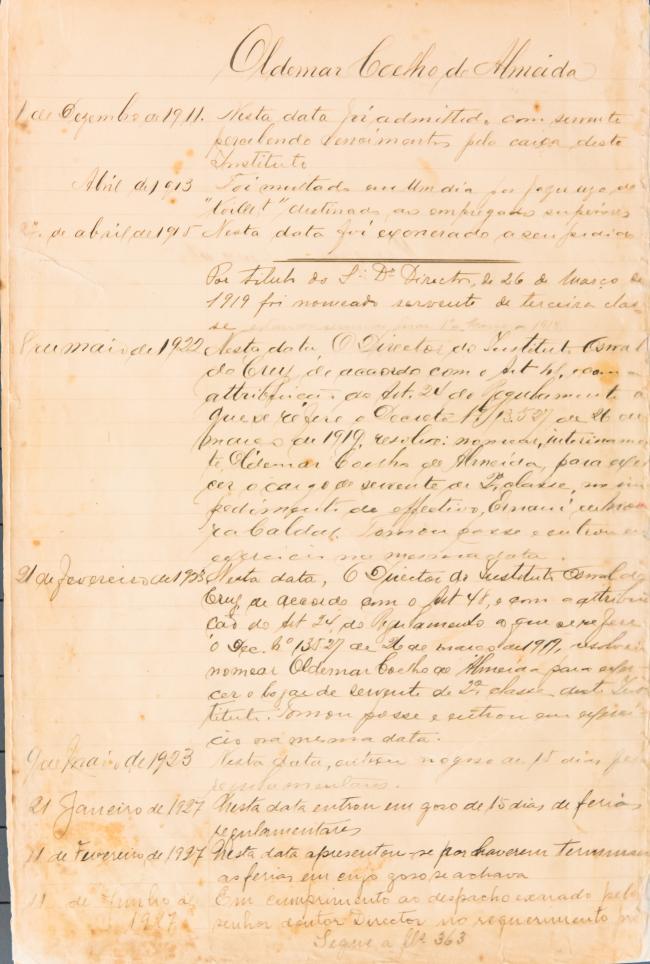 Oldemar Coelho de Almeida
1 de Dezembro de 1911. Nesta data foi admittido com servente
percebendo vencimentos pelo caixa deste
Instituto
Abril de 1913 Foi multado em Um dia por fazer uso do
"Toillet" destinado ao empregados superiores
de abril de 1915 Nesta data foi exonerado a seu pedido
Por titulo do Sr. Dr. Director, de 26 de Março de
1919 foi nomeado servente de terceira clas-
se
de maio de 1922 Nesta data, O Director do Instituto Oswal-
do Cruz, de accordo com o Art 48, e com a
attribuição do Art. 24 do Regulamento a
que se refere o Decreto Nº 13.527 de 26 de
março de 1919, resolveu nomear, interinamen-
te, Oldemar Coelho de Almeida, para exer-
cer o cargo de servente de 2ª classe, no im-
pedimento do effectivo, Ernani
Caldas. Tomou posse e entrou em
exercicio na mesma data.
21 de Fevereiro de 1923 Nesta data, O Director do Instituto Oswaldo
Cruz, de accordo com o Art 48, e com a attribui-
ção do Art 24, do Regulamento a que se refere
o Dec. Nº 13527 de 26 de março de 1919, resolveu
nomear Oldemar Coelho de Almeida para exer-
cer o logar de servente de 2ª classe deste Ins-
tituto. Tomou posse e entrou em exerci-
cio na mesma data.
9 de Maio de 1923 Nesta data, entrou no goso de 15 dias
regulamentares.
21 Janeiro de 1927 Nesta data entrou em goso de 15 dias de ferias
regulamentares
11 de Fevereiro, de 1927 Nesta data apresentou-se por haverem terminado
as ferias em cujo goso se achava
11 de Junho de Em cumprimento ao despacho exarado pelo
1927 senhor doutor Director no requerimento
Segue a fls 363